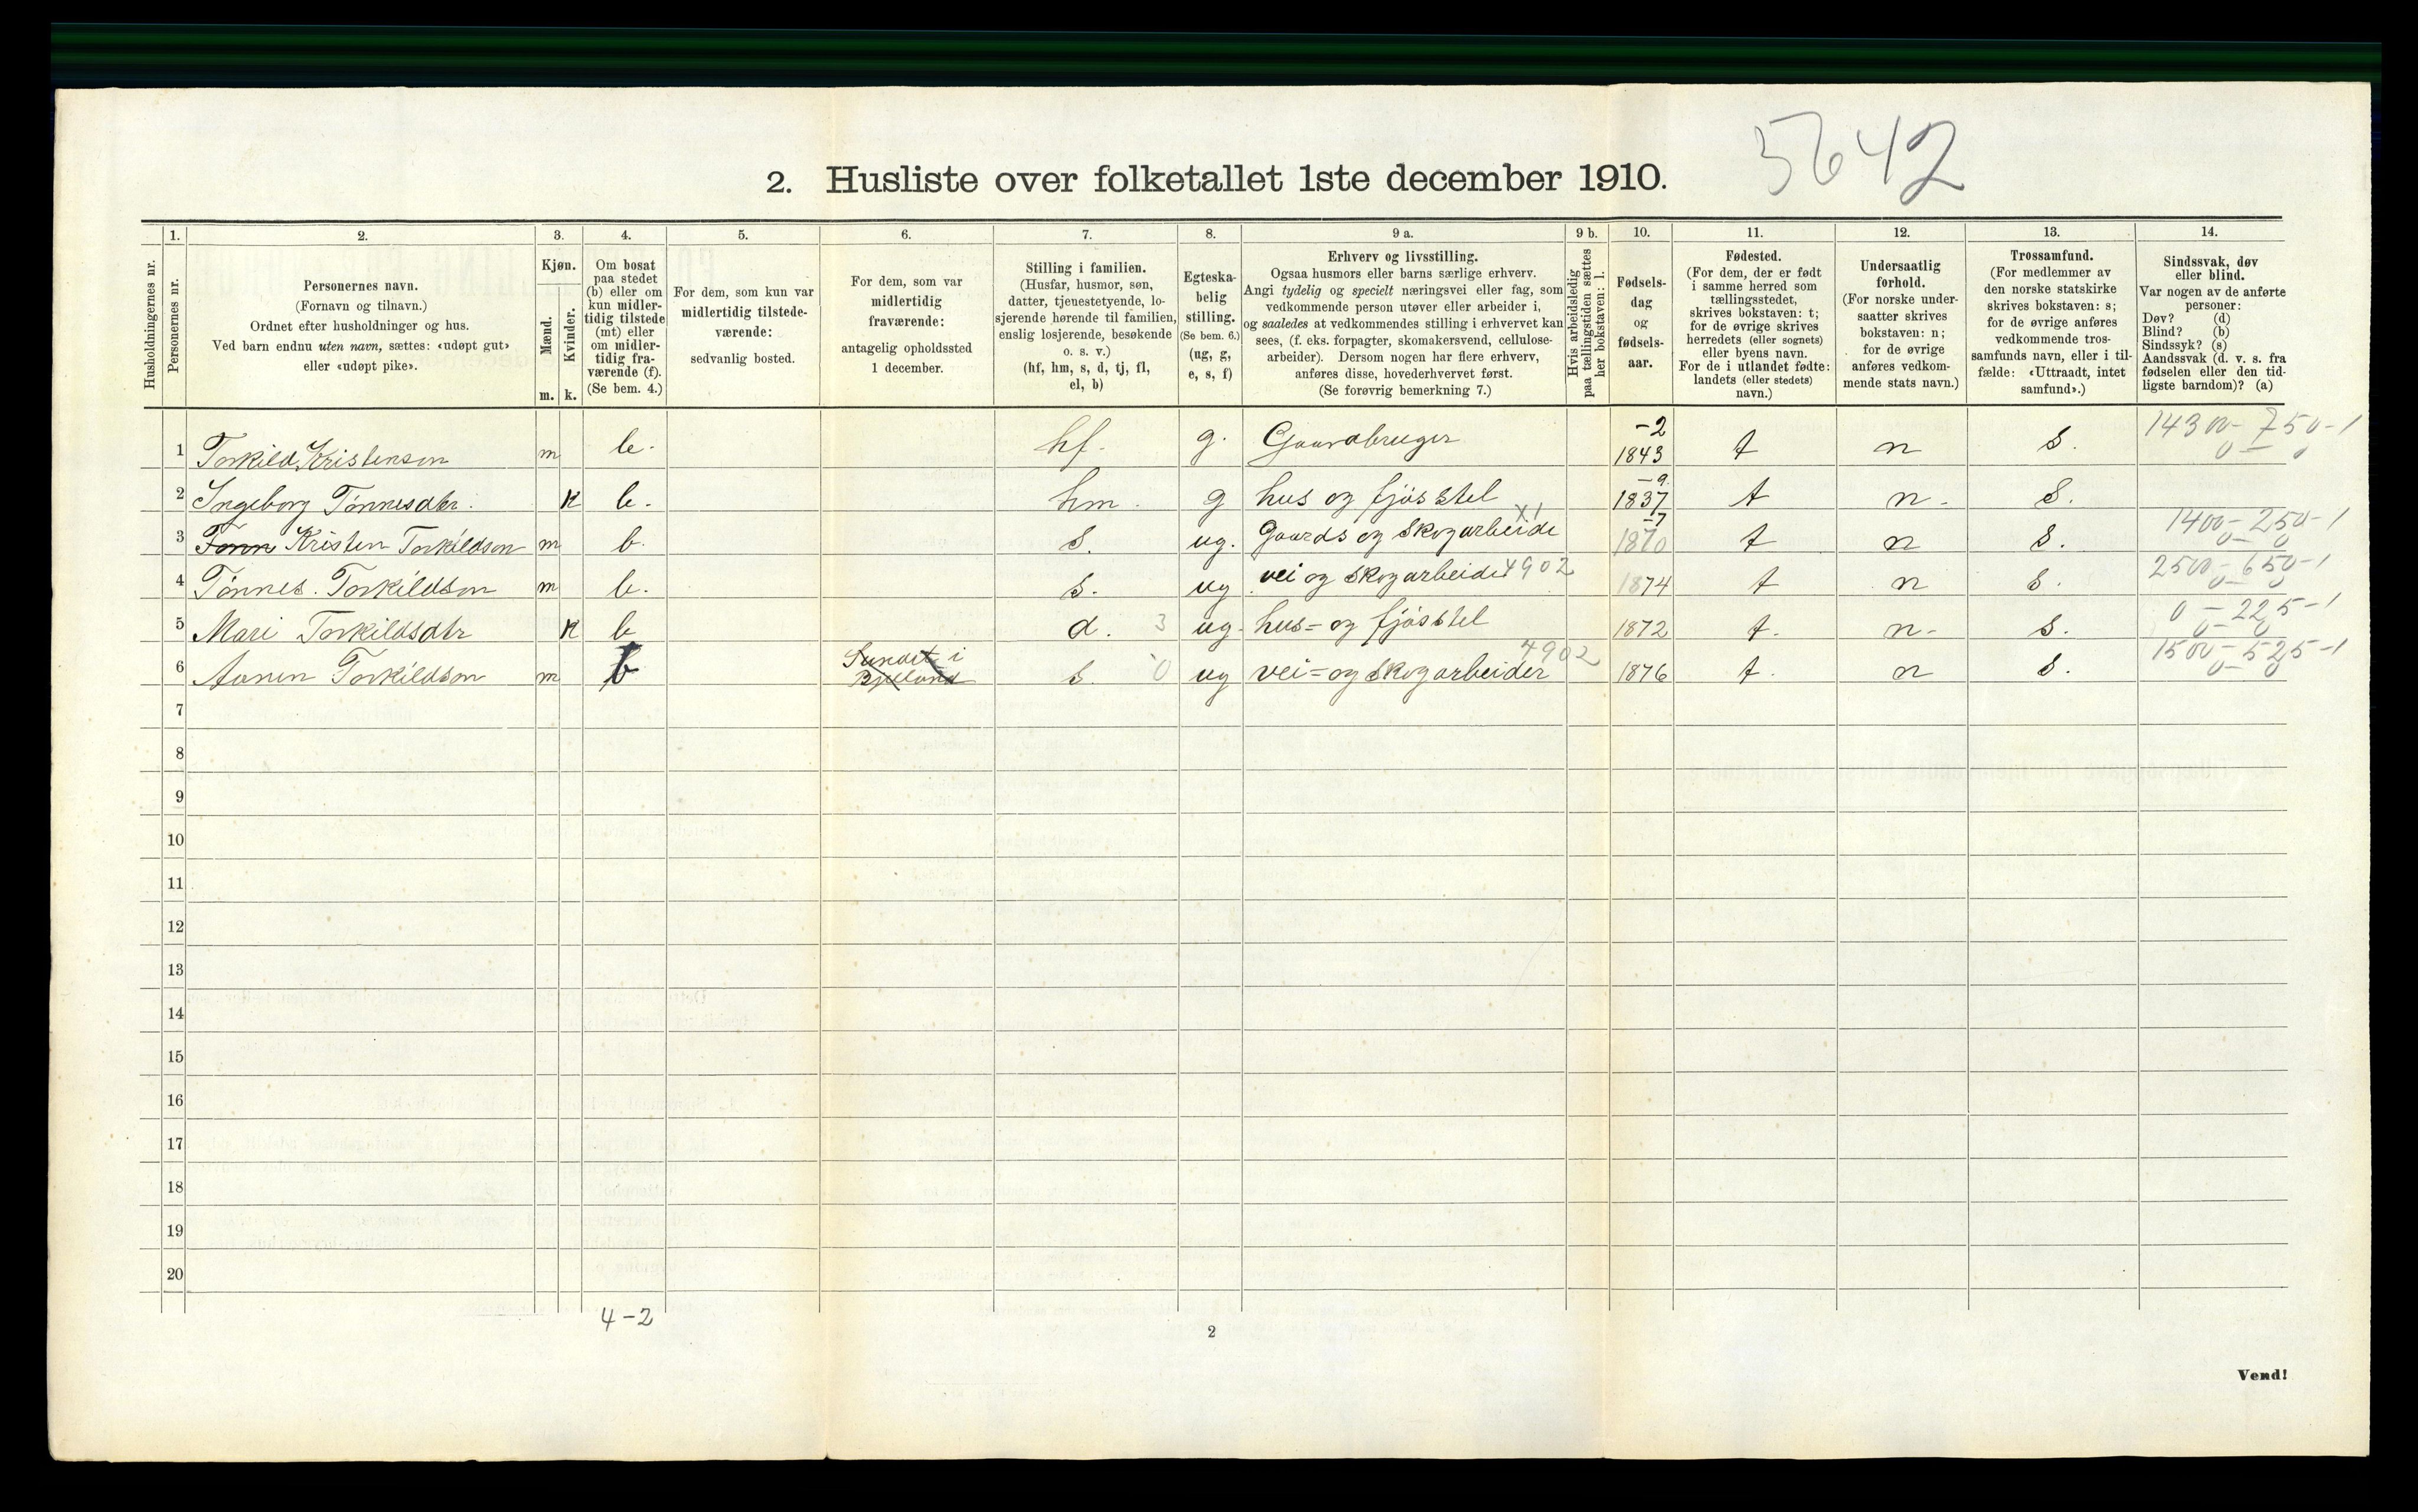 5642
2. Husliste over folketallet 1ste december 1910.
Husholdningernes nr.
1.
Personernes nr.
2.
Personernes navn.
(Fornavn og tilnavn.)
Ordnet efter husholdninger og hus.
Ved barn endnu uten navn, sættes: «udøpt gut»
eller «udøpt pike».
3.
Kjøn.
Mænd.
Kvinder.
m. k.
4.
Om bosat
paa stedet
(b) eller om
kun midler-
tidig tilstede
(mt) eller
om midler-
tidig fra-
værende (f).
(Se bem. 4.)
5.
For dem, som kun var
midlertidig tilstede-
værende:
sedvanlig bosted.
6.
For dem, som var
midlertidig
fraværende:
antagelig opholdssted
1 december.
7.
Stilling i familien.
(Husfar, husmor, søn,
datter, tjenestetyende, lo-
sjerende hørende til familien,
enslig losjerende, besøkende
o. s. v.)
(hf, hm, s, d, tj, fl,
el, b)
8.
Egteska-
belig
stilling.
(Se bem. 6.)
(ug, g,
e, s, f)
9 a.
Erhverv og livsstilling.
Ogsaa husmors eller barns særlige erhverv.
Angi tydelig og specielt næringsvei eller fag, som
vedkommende person utøver eller arbeider i,
og saaledes at vedkommendes stilling i erhvervet kan
sees, (f. eks. forpagter, skomakersvend, cellulose-
arbeider). Dersom nogen har flere erhverv,
anføres disse, hovederhvervet først.
(Se forøvrig bemerkning 7.)
9 b.
Hvis arbeidsledig
paa tællingstiden sættes
her bokstaven: l.
10.
Fødsels-
dag
og
fødsels-
aar.
11.
Fødested.
(For dem, der er født
i samme herred som
tællingsstedet,
skrives bokstaven: t;
for de øvrige skrives
herredets (eller sognets)
eller byens navn.
For de i utlandet fødte:
landets (eller stedets)
navn.)
12.
Undersaatlig
forhold.
(For norske under-
saatter skrives
bokstaven: n;
for de øvrige
anføres vedkom-
mende stats navn.)
13.
Trossamfund.
(For medlemmer av
den norske statskirke
skrives bokstaven: s;
for de øvrige anføres
vedkommende tros-
samfunds navn, eller i til-
fælde: «Uttraadt, intet
samfund».)
14.
Sindssvak, døv
eller blind.
Var nogen av de anførte
personer:
Døv? (d)
Blind? (b)
Sindssyk? (s)
Aandssvak (d. v. s. fra
fødselen eller den tid-
ligste barndom)? (a)
1 Torkild Kristenson m b. hf. g. Gaardbruger -2 1843 t n s. 14300-750-1 0-0
2 Ingeborg Tønnesdtr. k b. hm. g hus og fjøsstel -9 1837 t n. s.
3 Kristen Torkildson m b. s. ug. Gaards og Skogarbeide X1 -7 1870 t n s. 1400-250-1 0-0
4 Tønnes. Torkildson m b. s. ug vei og Skogarbeider 4902 1874 t n s. 2500-650-1 0-0
5 Mari Torkildsdtr k b d. 3 ug. hus= og fjøsstel 1872 t. n. s. 0-225-1 0-0
6 Aanen Torkildson m b Sundet i Bjelland s. 0 ug vei= og Skogarbeider 4902 1876 t. n s. 1500-525-1 0-0
7
8
9
10
11
12
13
14
15
16
17
18
19
20
4-2
2
Vend!